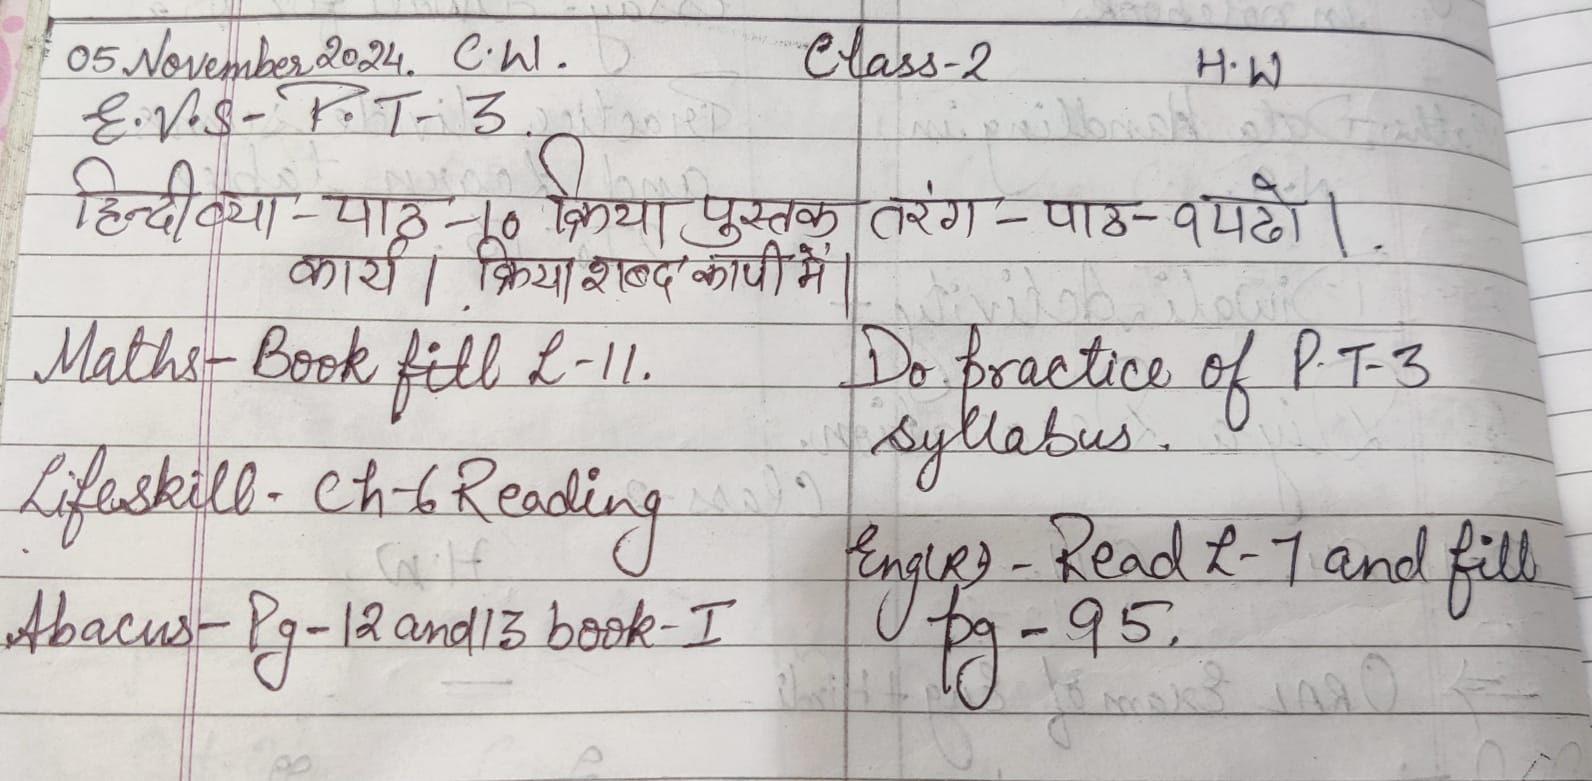 05 November 2024. C.W. Class-2 H.W
E.V.S- P.T-3.
हिन्दी व्या - पाठ -10 क्रिया पुस्तक तरंग - पाठ- ९ पढो।
कार्य। क्रिया शब्द कापी में।
Maths- Book fill L-11. Do practice of P.T-3
syllabus.
Lifeskill- Ch-6 Reading
Eng(R) - Read L-7 and fill
Abacus- Pg-12 and 13 book-I pg-95.